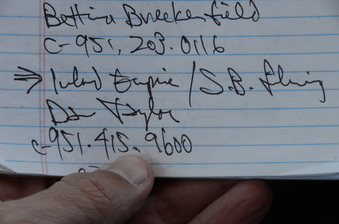 Bettina Breekenfield
C-951.203.0116
⇒ Inland Empire / S.B.
Dan Taylor
C-951.415.9600